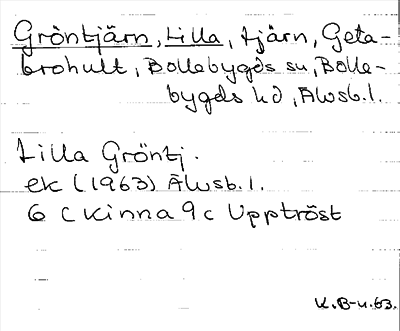 Gröntjärn, Lilla, tjärn, Geta-
brohult, Bollebygds sn, Bolle-
bygds hd, Älvsb. l.
Lilla Gröntj.
ek (1963) Älvsb. l.
6 C Kinna 9 c Upptröst
K.B-n.63.